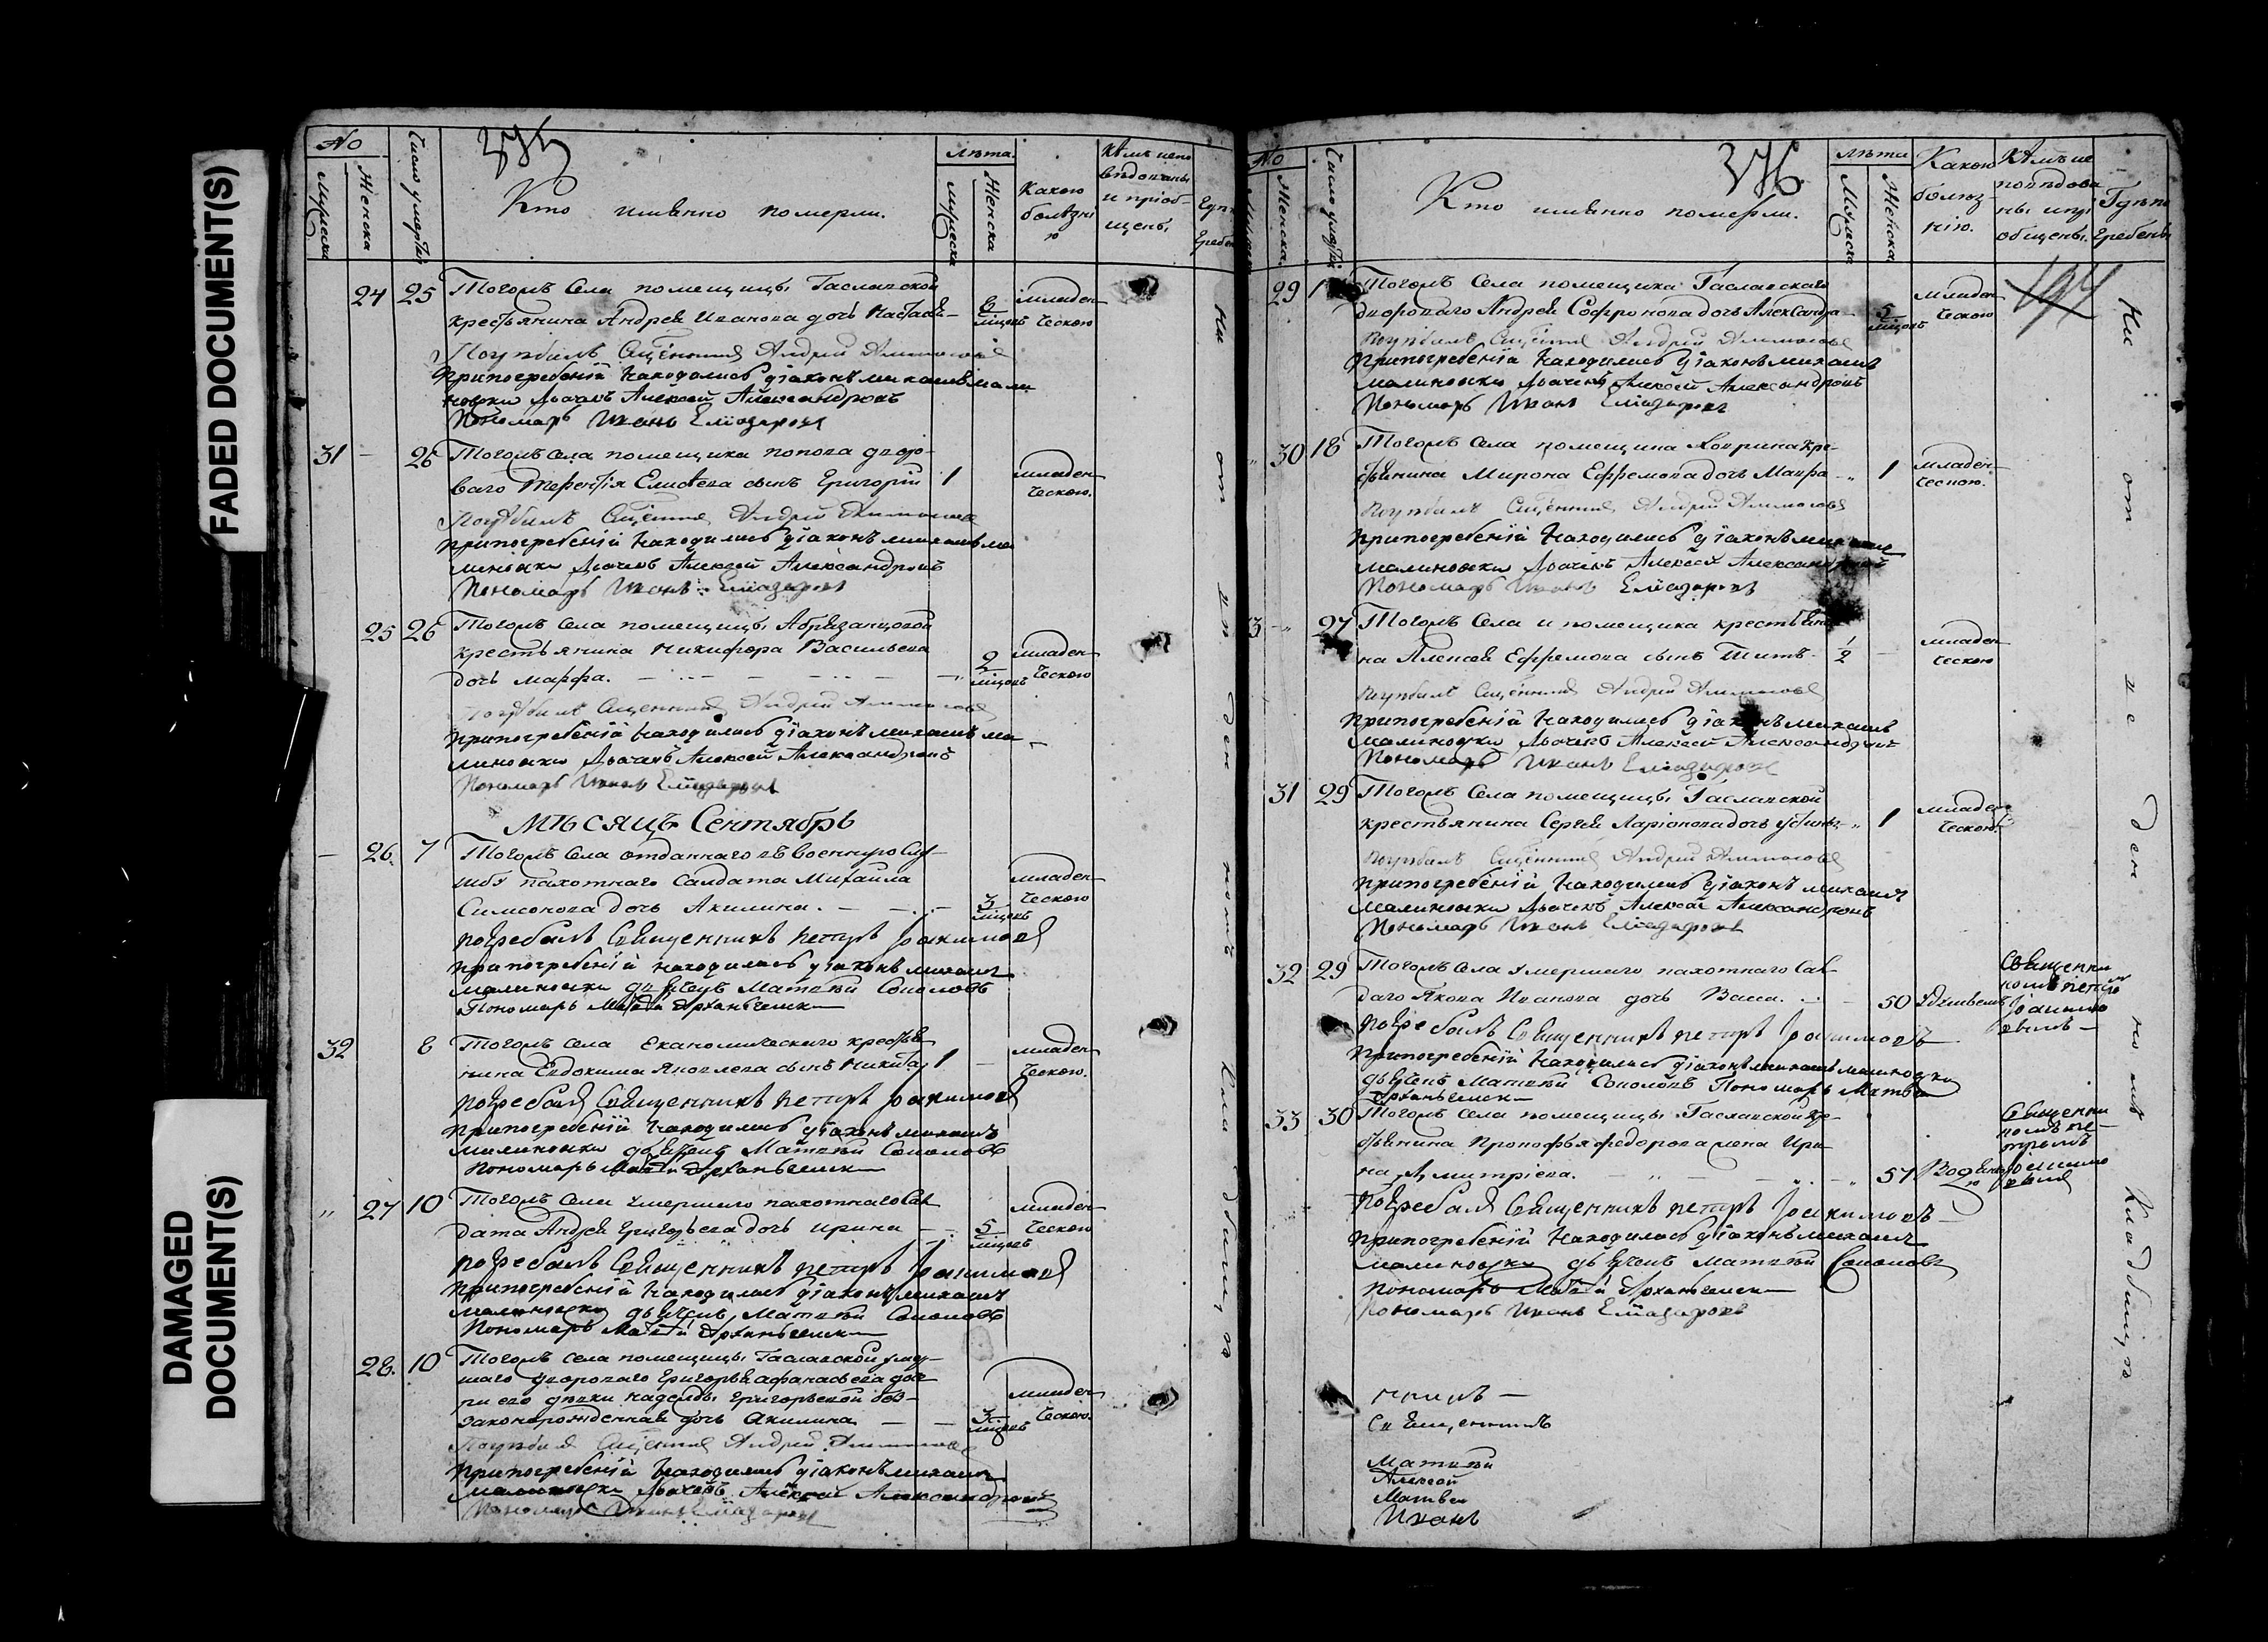 FADED DOCUMENT(S)
DAMAGED
DOCUMENT(S)
№
Мужеска
Женска
Число умертвій
375
Кто имѣнно померли.
Лѣта.
Мужеска
Женска
Какою
болѣзні
ю
Кѣмъ испо
вѣдованы
и пріоб-
щены
24 25 Тогожъ Села помещицы Гаславской
крестьянина Андрея Иванова дочь 6 міцовъ младен-
ческою
Погребалъ Сщенникъ Андрей
При погребеніи находились діаконъ михаилъ мали
новски дьячекъ Алексей Александровъ
Пономарь Иванъ Еліазаровъ
31 - 26 Тогожъ села помещика попова дворо-
ваго Терентія Елисѣева сынъ Григорій 1 младен-
ческою.
Погребалъ Сщенникъ Андрей
При погребеніи находились діаконъ михаилъ ма
линовски дьячекъ Алексей Александровъ
Пономарь Иванъ Еліазаровъ
25 26 Тогожъ Села помещицы Абрязанцовой
крестьянина Никифора Васильева
дочь марфа. 2 міцовъ младен-
ческою
Погребалъ Сщенникъ Андрей
При погребеніи находились діаконъ михаилъ ма
линовски дьячекъ Алексей Александровъ
Пономарь Иванъ Еліазаровъ
мѣсяцъ Сентябрь
- 26. 7 Тогожъ Села отданнаго въ военную слу-
жбу пахотнаго Салдата Михаила
Симеонова дочь Акилина. 3 міцовъ младен-
ческою
погребалъ Священникъ петръ Іоакимовъ
При погребеніи находились діаконъ михаилъ
малиновски дьячекъ Матвѣй Соколовъ
Пономарь Матвѣй Архангелски
32 8 Тогожъ села Економическаго крестья
нина Евдокима Яковлева сынъ Никита 1 - младен-
ческою.
погребалъ Священникъ петръ Іоакимовъ
При погребеніи находились діаконъ михаилъ
малиновски дьячекъ Матвѣй Соколовъ
Пономарь Матвѣй Архангелски
„ 27 10 Тогожъ Села умершаго пахотнаго Сал
дата Андрея Григорьева дочь ирина 5 міцовъ младен-
ческою
погребалъ Священникъ петръ Іоакимовъ
При погребеніи находились діаконъ михаилъ
малиновски дьячекъ Матвѣй Соколовъ
Пономарь Матвѣй Архангелски
28. 10 Тогожъ села помещицы Гаславской умер-
шаго двороваго Григорья афанасьева доч-
ри его девки надежды Григорьевой без-
законорожденная дочь Акилина 3 міцовъ младен-
ческою.
Погребалъ Сщенникъ Андрей
При погребеніи находились діаконъ михаилъ
малиновски дьячекъ Алексей Александровъ
Пономарь Иванъ Еліазаровъ
На отведенномъ Кладбищѣ
№
Женска
376
Кто имѣнно померли.
лѣта
Мужеска
Женска
Какою
болѣз-
нію.
Кѣмъ ис
повѣдова
ны и прі
общены.
Гдѣ по
гребены
29 Тогожъ Села помещика Гаславскаго
двороваго Андрея Софронова дочь Александра 5 міцовъ младен-
ческою
194
Погребалъ Сщенникъ Андрей
При погребеніи находились діаконъ михаилъ
малиновски дьячекъ Алексей Александровъ
Пономарь Иванъ Еліазаровъ
„ 30 18 Тогожъ Села помещика кре-
стьянина Мирона Ефремова дочь Мавра 1 младен-
ческою.
Погребалъ Сщенникъ Андрей
При погребеніи находились діаконъ михаилъ
малиновски дьячекъ Алексей Александровъ
Пономарь Иванъ Еліазаровъ
27 Тогожъ Села и помещика крестьяни
на Алексея Ефремова сынъ Титъ 1/2 - младен-
ческою
Погребалъ Сщенникъ Андрей
При погребеніи находились діаконъ михаилъ
малиновски дьячекъ Алексей Александровъ
Пономарь Иванъ Еліазаровъ
31 29 Тогожъ Села помещицы Гаславской
крестьянина Сергея Ларіонова дочь Устинья 1 младен-
ческою.
Погребалъ Сщенникъ Андрей
При погребеніи находились діаконъ михаилъ
малиновски дьячекъ Алексей Александровъ
Пономарь Иванъ Еліазаровъ
32 29 Тогожъ Села умершаго пахотнаго Сал-
даго Якова Иванова дочь Васса. 50 Удушьемъ Священни
комъ петро
Іоакимо
вымъ
погребалъ Священникъ петръ Іоакимовъ
При погребеніи находились діаконъ михаилъ малиновски
дьячекъ Матвѣй Соколовъ Пономарь Матвѣй
Архангелски
33 30 Тогожъ Села помещицы Гаславской кре-
стьянина Прокофья федорова жена Ири
на Дмитріева. 57 Водяною Священни
комъ пе-
тромъ
Іоакимо
вымъ
погребалъ Священникъ петръ Іоакимовъ
При погребеніи находились діаконъ михаилъ
малиновски дьячекъ Матвѣй Соколовъ
пономарь Матвѣй Архангелски
пономарь Иванъ Еліазаровъ
Священникъ
Матвѣй
Алексей
Матвей
Иванъ
На отведенномъ Кладбищѣ